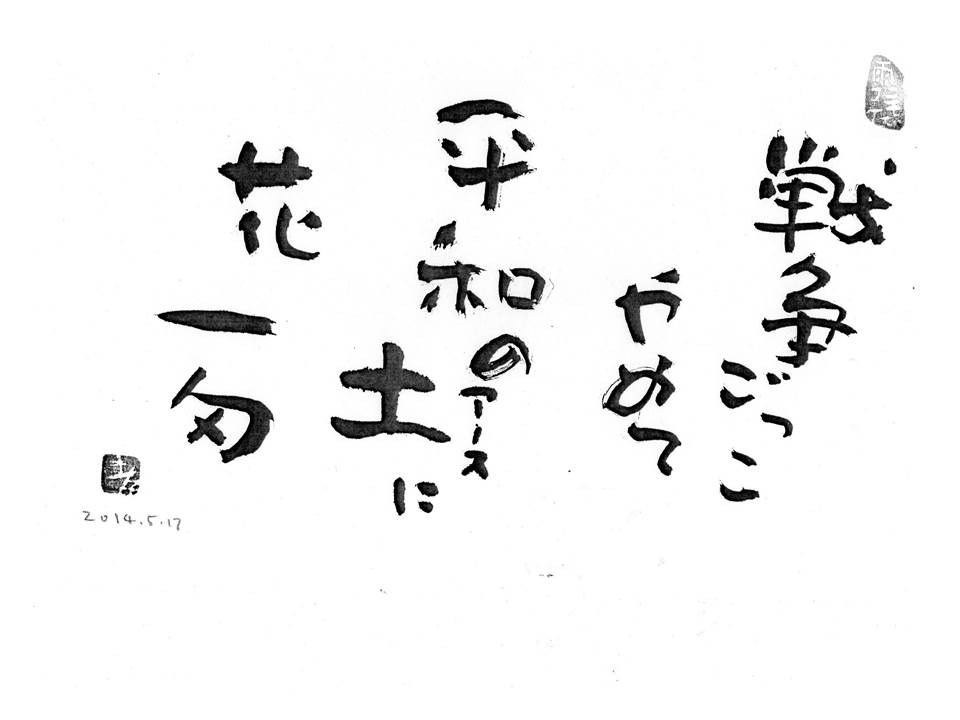 戦争ごっこ
やめて
平和の
土に
アース
花一匁
2014.5.17